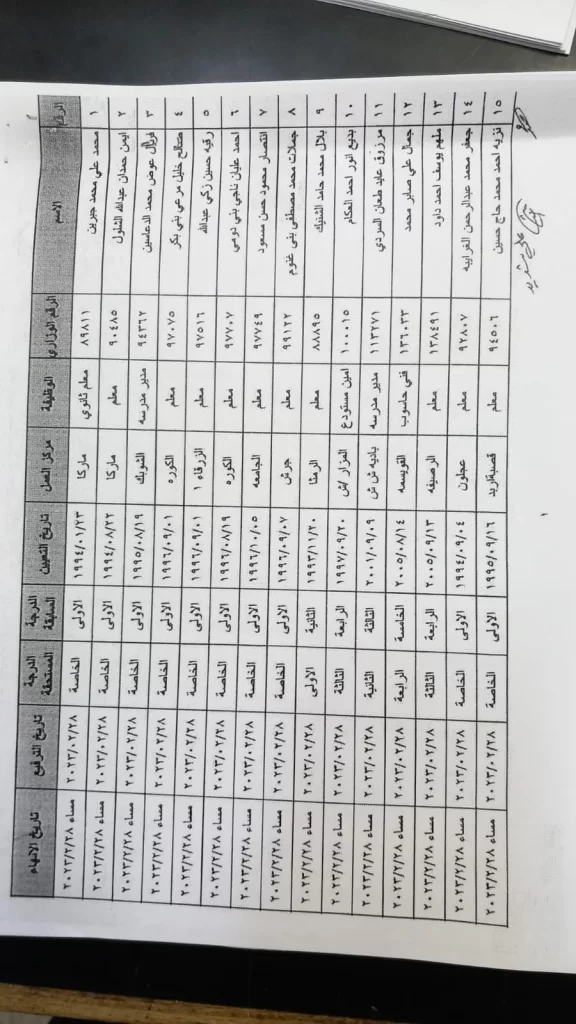 الرقم الاسم الرقم الوزاري الوظيفة مركز العمل تاريخ التعيين الدرجة السابقة الدرجة المستحقة تاريخ الترفيع تاريخ الانهاء
١ محمد علي محمد جبرين ٨٩٨١١ معلم ثانوي ماركا ١٩٩٤/٠١/٢٣ الاولى الخاصة ٢٠٢٣/٠٢/٢٨ مساء ٢٠٢٣/٢/٢٨
٢ ايمن حمدان عبدالله الشلول ٩٠٤٨٥ معلم ماركا ١٩٩٤/٠٨/٢٢ الاولى الخاصة ٢٠٢٣/٠٢/٢٨ مساء ٢٠٢٣/٢/٢٨
٣ فريال عوض محمد الدعاسين ٩٤٣٦٢ مدير مدرسه الشوبك ١٩٩٥/٠٨/١٩ الاولى الخاصة ٢٠٢٣/٠٢/٢٨ مساء ٢٠٢٣/٢/٢٨
٤ صالح خليل مرعي بني بكر ٩٧٠٧٥ معلم الكوره ١٩٩٦/٠٩/٠١ الاولى الخاصة ٢٠٢٣/٠٢/٢٨ مساء ٢٠٢٣/٢/٢٨
٥ رقيه حسين زكي عبدالله ٩٧٥١٦ معلم الزرقاء ١ ١٩٩٦/٠٩/٠١ الاولى الخاصة ٢٠٢٣/٠٢/٢٨ مساء ٢٠٢٣/٢/٢٨
٦ احمد عليان ناجي بني دومي ٩٧٧٠٧ معلم الكوره ١٩٩٦/٠٨/١٩ الاولى الخاصة ٢٠٢٣/٠٢/٢٨ مساء ٢٠٢٣/٢/٢٨
٧ انتصار محمود حسن مسعود ٩٧٧٤٩ معلم الجامعه ١٩٩٦/١٠/٠٥ الاولى الخاصة ٢٠٢٣/٠٢/٢٨ مساء ٢٠٢٣/٢/٢٨
٨ جملات محمد مصطفى بني غنوم ٩٩١٢٢ معلم جرش ١٩٩٦/٠٩/٠٧ الاولى الخاصة ٢٠٢٣/٠٢/٢٨ مساء ٢٠٢٣/٢/٢٨
٩ بلال محمد حامد الشبيك ٨٨٨٩٥ معلم الرمثا ١٩٩٣/١١/٢٠ الثانية الاولى ٢٠٢٣/٠٢/٢٨ مساء ٢٠٢٣/٢/٢٨
١٠ بديع انور احمد العكام ١٠٠٠١٥ امين مستودع المزار /ش ١٩٩٧/٠٩/٢٠ الرابعة الثالثة ٢٠٢٣/٠٢/٢٨ مساء ٢٠٢٣/٢/٢٨
١١ مرزوق عايد طعان السردي ١١٣٢٧١ مدير مدرسه باديه ش ش ٢٠٠١/٠٩/٠٩ الثالثة الثانية ٢٠٢٣/٠٢/٢٨ مساء ٢٠٢٣/٢/٢٨
١٢ جمال علي صابر محمد ١٣٦٠٣٣ فني حاسوب القويسمه ٢٠٠٥/٠٨/١٤ الخامسة الرابعة ٢٠٢٣/٠٢/٢٨ مساء ٢٠٢٣/٢/٢٨
١٣ ملهم يوسف احمد داود ١٣٨٤٩١ معلم الرصيفه ٢٠٠٥/٠٩/١٣ الرابعة الثالثة ٢٠٢٣/٠٢/٢٨ مساء ٢٠٢٣/٢/٢٨
١٤ جعفر محمد عبدالرحمن الغرايبه ٩٢٨٠٧ معلم عجلون ١٩٩٤/٠٩/٠٤ الاولى الخاصة ٢٠٢٣/٠٢/٢٨ مساء ٢٠٢٣/٢/٢٨
١٥ نزيه احمد محمد حاج حسين ٩٤٥٠٦ معلم قصبةاربد ١٩٩٥/٠٩/١٦ الاولى الخاصة ٢٠٢٣/٠٢/٢٨ مساء ٢٠٢٣/٢/٢٨
١